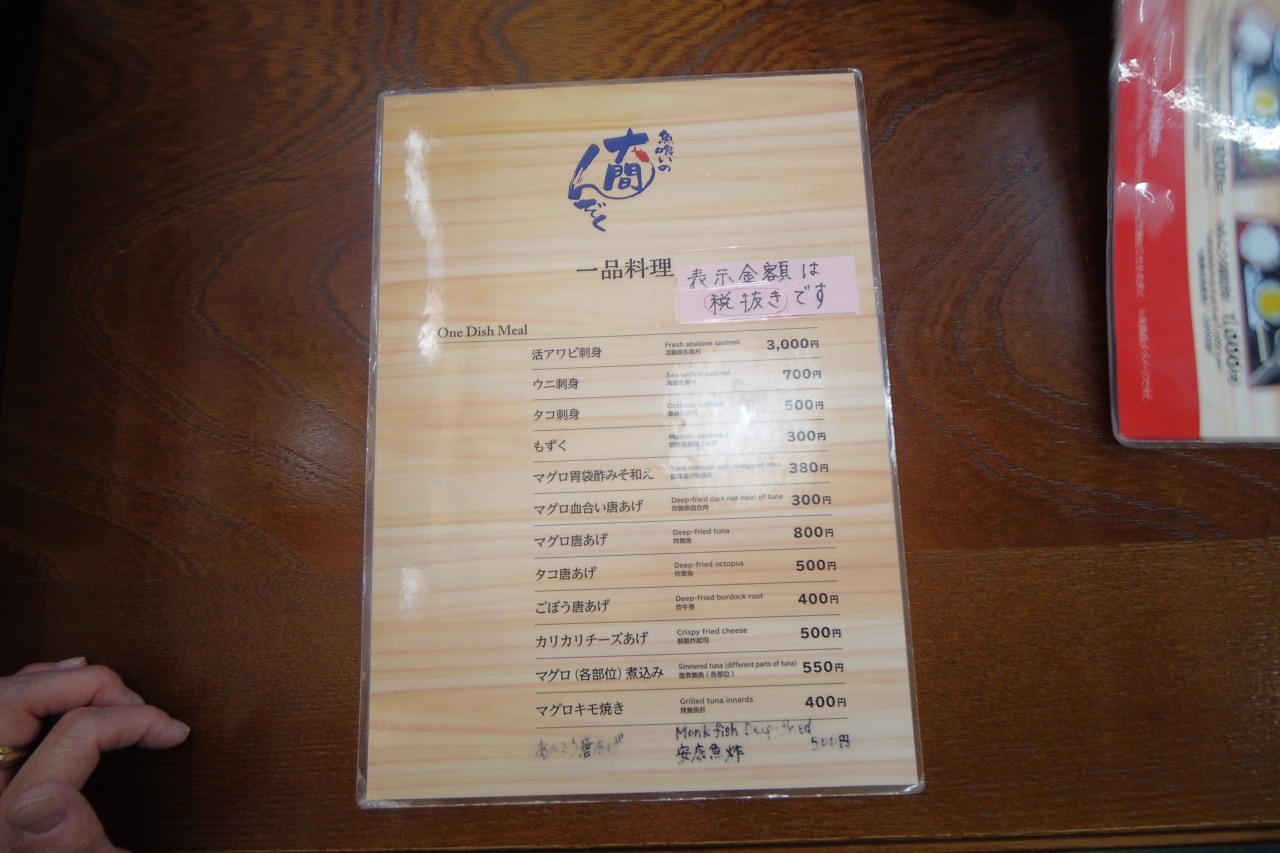 魚喰いの
大間んぞく
一品料理
表示金額は
税抜きです
One Dish Meal
活アワビ刺身 Fresh abalone sashimi 3,000円
ウニ刺身 Sea urchin sashimi 700円
タコ刺身 Octopus sashimi 500円
もずく 300円
マグロ胃袋酢みそ和え Tuna stomach with vinegared miso 380円
マグロ血合い唐あげ Deep-fried dark red meat of tuna 300円
炸鮪魚血合肉
マグロ唐あげ Deep-fried tuna 800円
炸鮪魚
タコ唐あげ Deep-fried octopus 500円
炸章魚
ごぼう唐あげ Deep-fried burdock root 400円
炸牛蒡
カリカリチーズあげ Crispy fried cheese 500円
酥脆炸起司
マグロ(各部位)煮込み Simmered tuna (different parts of tuna) 550円
燉煮鮪魚(各部位)
マグロキモ焼き Grilled tuna innards 400円
烤鮪魚肝
あんこう唐あげ Monkfish Deep-fried 500円
安康魚炸